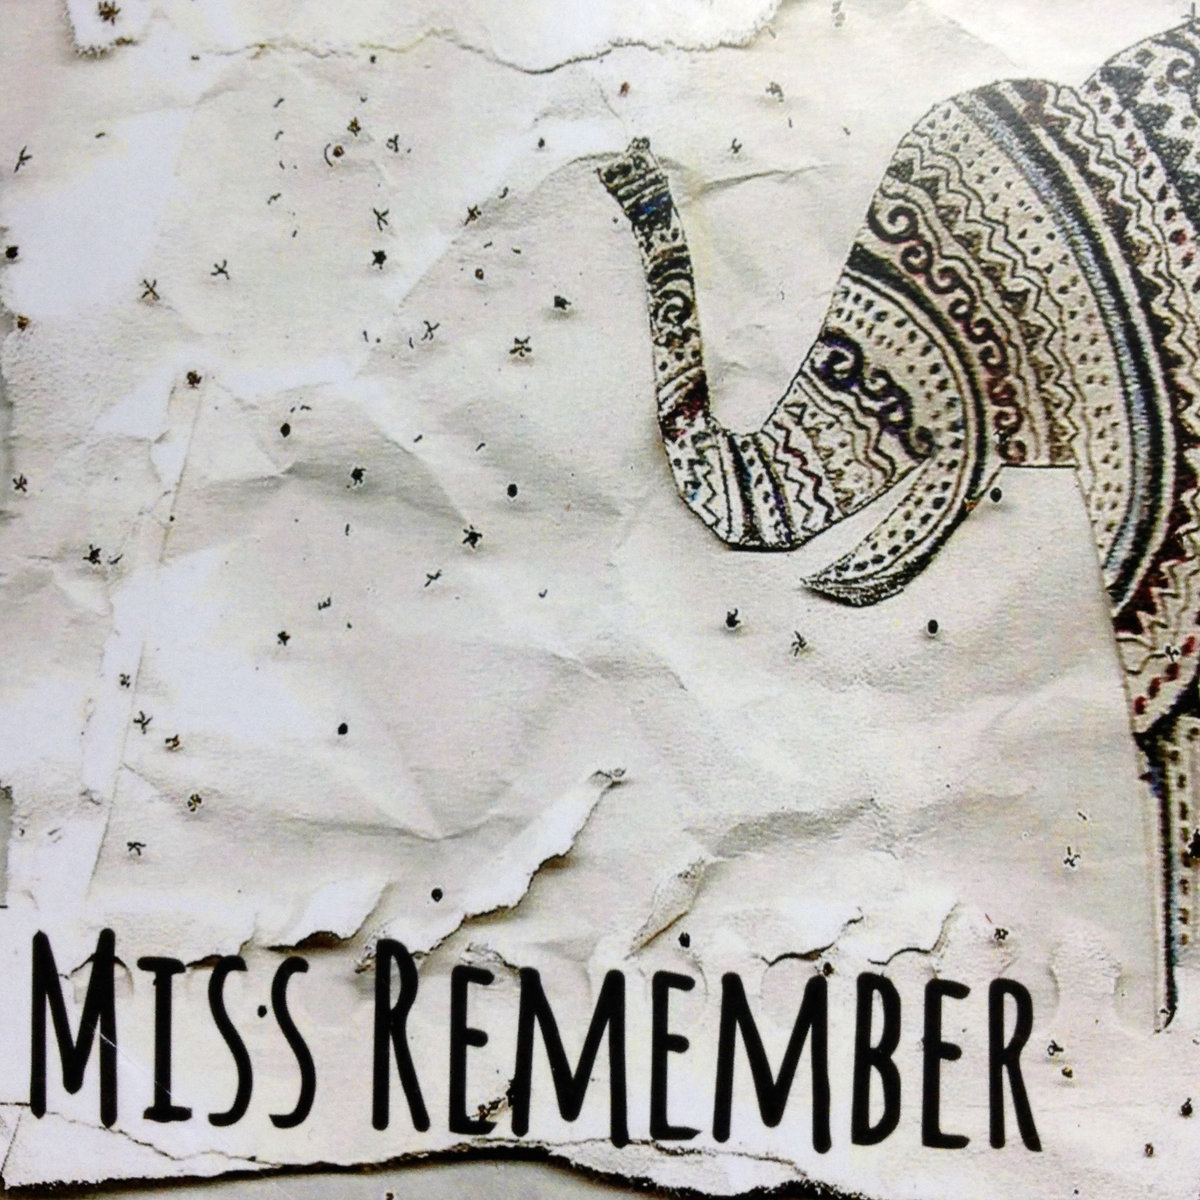 MISS REMEMBER